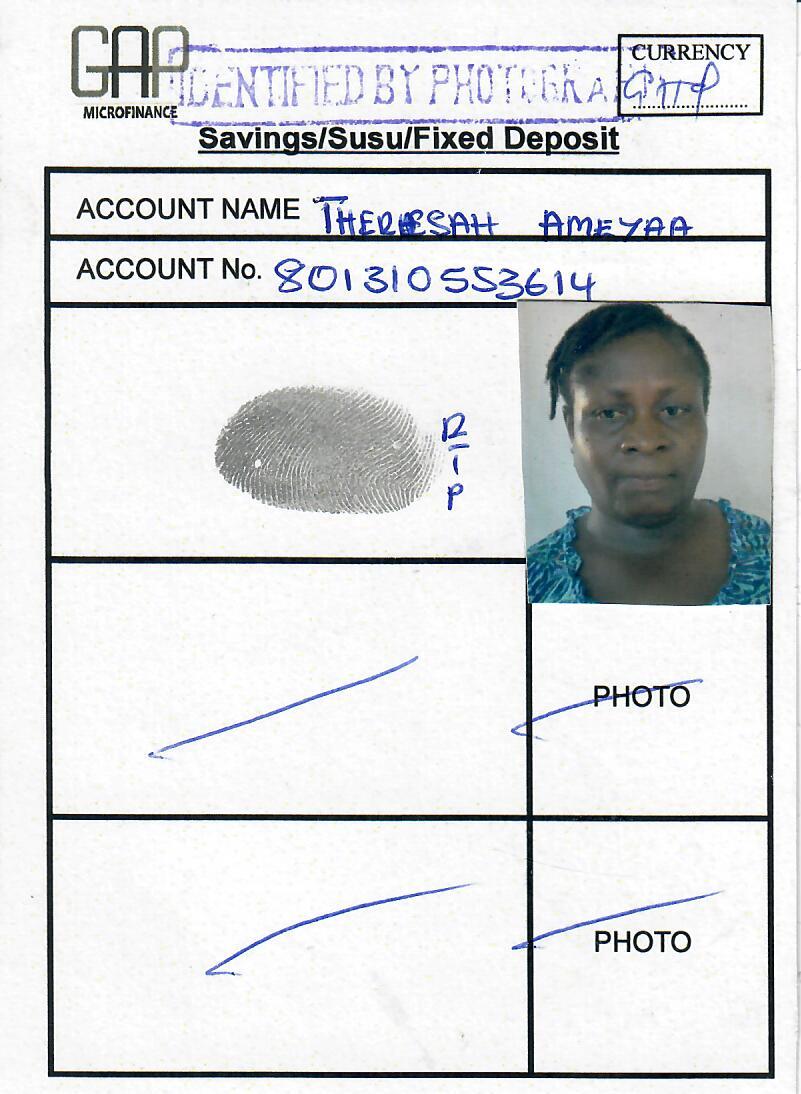 GAP
MICROFINANCE
IDENTIFIED BY PHOTOGRA
CURRENCY
Savings/Susu/Fixed Deposit
ACCOUNT NAME THERESAH AMEYAA
ACCOUNT No. 801310553614
R
T
P
PHOTO
PHOTO